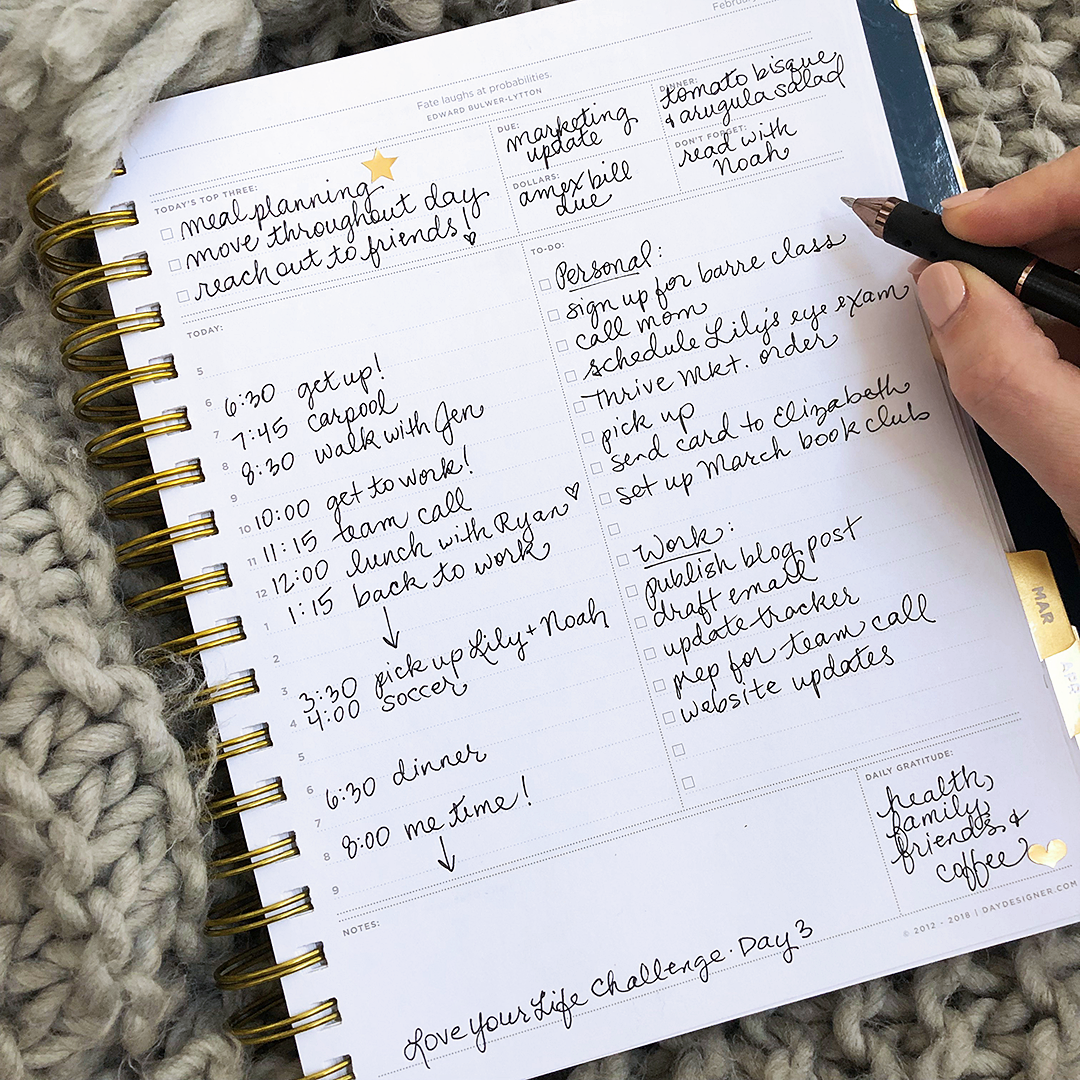 February
Fate laughs at probabilities.
EDWARD BULWER-LYTTON
TODAY'S TOP THREE:
meal planning
move throughout day
reach out to friends!
DUE:
marketing
update
DOLLARS:
amex bill
due
DINNER:
tomato bisque
& arugula salad
DON'T FORGET:
read with
Noah
TODAY:
5
6
6:30 get up!
7
7:45 carpool
8
8:30 walk with Jen
9
10
10:00 get to work!
11
11:15 team call
12
12:00 lunch with Ryan
1
1:15 back to work
2
3
3:30 pick up Lily + Noah
4
4:00 soccer
5
6
6:30 dinner
7
8
8:00 me time!
9
TO-DO:
Personal:
sign up for barre class
call mom
schedule Lily's eye exam
Thrive Mkt. order
pick up
send card to Elizabeth
set up March book club
Work:
publish blog post
draft email
update tracker
prep for team call
website updates
DAILY GRATITUDE:
health,
family,
friends, &
coffee
NOTES:
Love Your Life Challenge · Day 3
© 2012 - 2018 | DAYDESIGNER.COM
MAR
APR